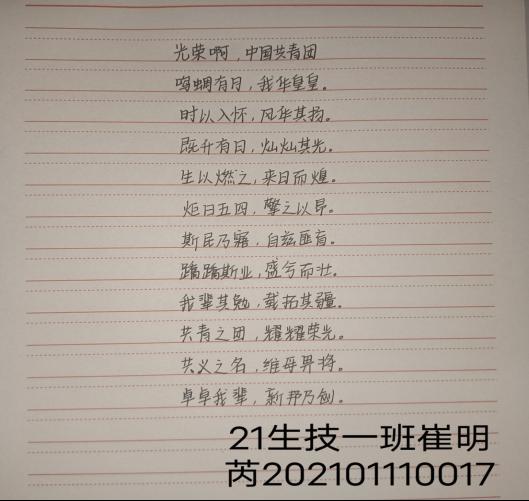 光荣啊，中国共青团
鸣蜩有日，我华皇皇。
时以入怀，风华其扬。
既升有日，灿灿其光。
生以燃之，来日而煌。
炬日五四，擎之以昂。
斯民乃寤，自兹匪盲。
蹻蹻斯业，盛兮而壮。
我辈其勉，载拓其疆。
共青之团，耀耀荣光。
共义之名，维毋畀将。
卓卓我辈，新邦乃创。
21生技一班崔明
芮202101110017